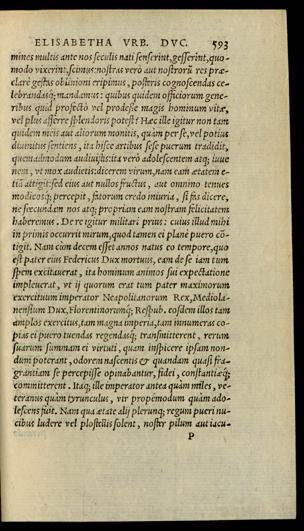 ELISABETHA VRB. DVC. 593
mines multis ante nos seculis nati senserint, gesserint, quo-
modo vixerint, scimus: nostras verò aut nostrorū res præ-
clarè gestas obliuioni eripimus, posteris cognoscendas ce-
lebrandasq; mandamus: quibus quidem officiorum gene-
ribus quid profectò vel prodesse magis hominum vitæ,
vel plus afferre splendoris potest? Hæc ille igitur non tam
quidem meis aut aliorum monitis, quàm per se, vel potius
diuinitus sentiens, ita hisce artibus sese puerum tradidit,
quemadmodum audiuistis: ita verò adolescentem atq; iuue
nem, vt mox audietis: dicerem virum, nam eam ætatem e-
tiā attigit: sed eius aut nullos fructus, aut omnino tenues
modicosq; percepit, fatorum credo iniuria, si fas dicere,
ne secundam nos atq; propriam eam nostram felicitatem
haberemus. De re igitur militari prius: cuius illud mihi
in primis occurrit mirum, quod tamen ei planè puero cō-
tigit. Nam cùm decem esset annos natus eo tempore, quo
est pater eius Federicus Dux mortuus, eam de se iam tum
spem excitauerat, ita hominum animos sui expectatione
impleuerat, vt ij quorum erat tum pater maximorum
exercituum imperator Neapolitanorum Rex, Mediola-
nensium Dux, Florentinorumq; Respub. eosdem illos tam
amplos exercitus, tam magna imperia, tam innumeras co-
pias ei puero tuendas regendasq; transmitterent, rerum
suarum summam ei virtuti, quam inspicere ipsam non-
dum poterant, odorem nascentis & quandam quasi fra-
grantiam se percepisse opinabantur, fidei, constantiæq;
committerent. Itaq; ille imperator antea quàm miles, ve-
teranus quàm tyrunculus, vir propemodum quàm ado-
lescens fuit. Nam qua ætate alij plerunq; regum pueri nu-
cibus ludere vel plostellis solent, noster pilum aut iacu-
P